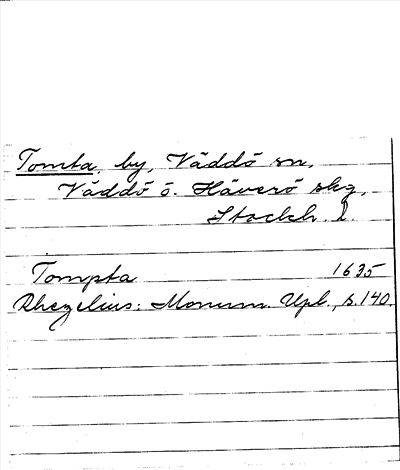 Tomta, by, Väddö sn,
Väddö o. Häverö skg,
Stockh. l.
Tompta 1635
Rhezelius: Monum. Upl., s. 140.